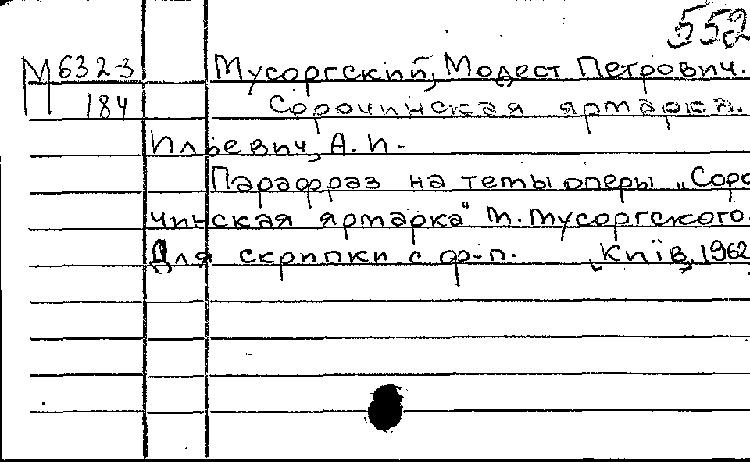 552
М 632-3 Мусоргский, Модест Петрович.
184 Сорочинская ярмарка.
Ильевич, А. И.
Парафраз на темы оперы „Соро
чинская ярмарка" М. Мусоргского.
Для скрипки с ф.-п. Київ, 1962